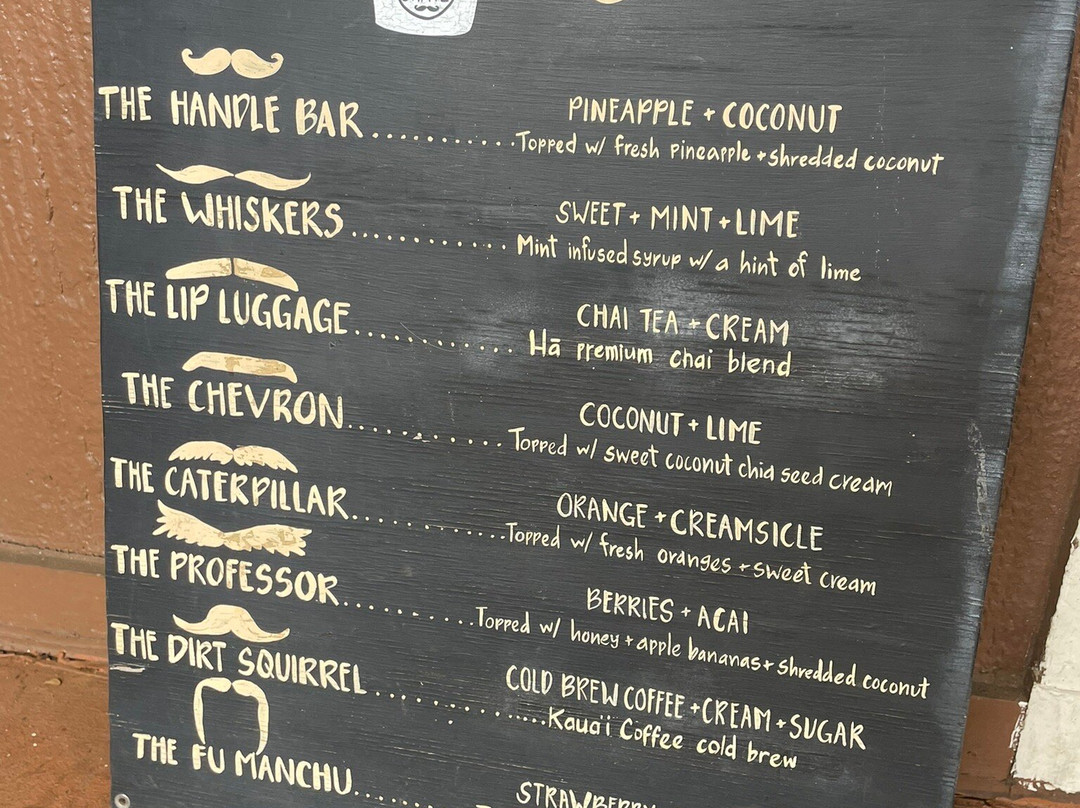 THE HANDLE BAR.............PINEAPPLE + COCONUT
Topped w/ fresh pineapple + shredded coconut
THE WHISKERS.............SWEET + MINT + LIME
Mint infused syrup w/ a hint of lime
THE LIP LUGGAGE.............CHAI TEA + CREAM
Hā premium chai blend
THE CHEVRON.............COCONUT + LIME
Topped w/ sweet coconut chia seed cream
THE CATERPILLAR.............ORANGE + CREAMSICLE
Topped w/ fresh oranges + sweet cream
THE PROFESSOR.............BERRIES + ACAI
Topped w/ honey + apple bananas + shredded coconut
THE DIRT SQUIRREL.............COLD BREW COFFEE + CREAM + SUGAR
Kaua'i Coffee cold brew
THE FU MANCHU.............STRAWBERRY